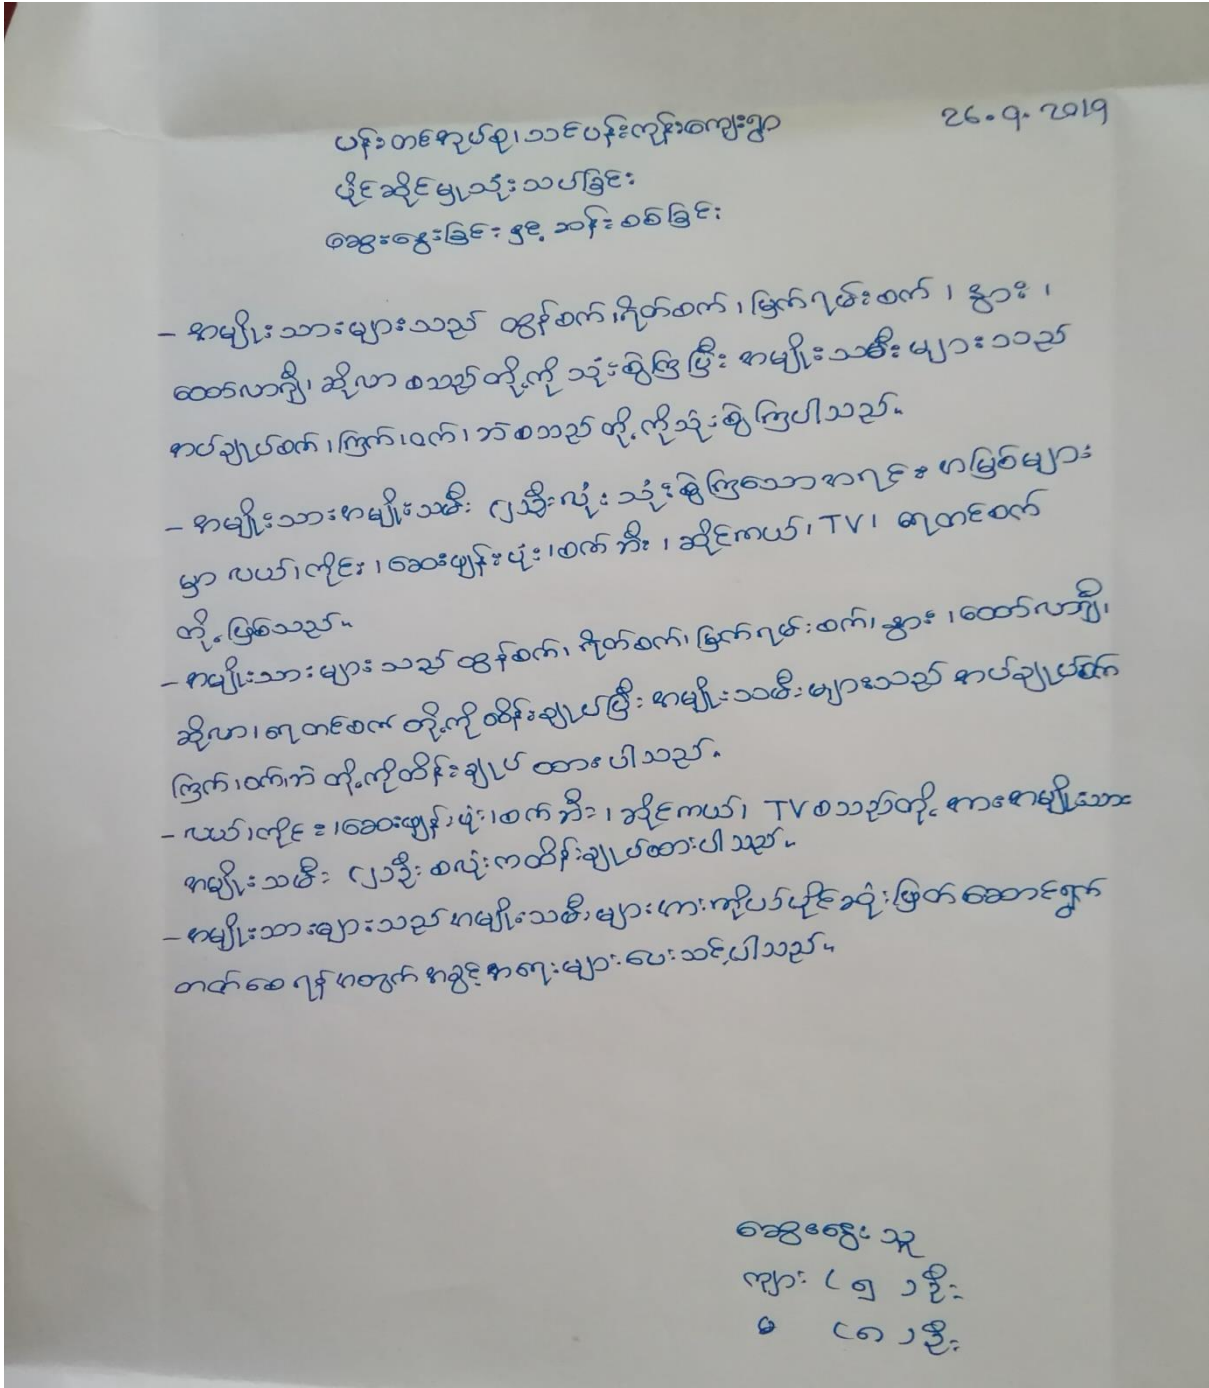 26.9.2019
ပန်းတင်အုပ်စု၊ သင်ပန်းကုန်းကျေးရွာ
ပိုင်ဆိုင်မှုသုံးသပ်ခြင်း
ဆွေးနွေးခြင်းနှင့် ဆန်းစစ်ခြင်း
- အမျိုးသားများသည် ထွန်စက်၊ ရိတ်စက်၊ မြက်ရှမ်းစက်၊ နွား၊
ထော်လာဂျီ၊ ဆိုလာ စသည်တို့ကို သုံးစွဲကြပြီး အမျိုးသမီးများသည်
အပ်ချုပ်စက်၊ ကြက်၊ ဝက်၊ ဘဲ စသည်တို့ကိုသုံးစွဲကြပါသည်။
- အမျိုးသားအမျိုးသမီး (၂)ဦးလုံး သုံးစွဲကြသောအရင်းအမြစ်များ
မှာ လယ်၊ ကိုင်း၊ ဆေးဖျန်းပုံး၊ စက်ဘီး၊ ဆိုင်ကယ်၊ TV၊ ရေတင်စက်
တို့ဖြစ်သည်။
- အမျိုးသားများသည် ထွန်စက်၊ ရိတ်စက်၊ မြက်ရှမ်းစက်၊ နွား၊ ထော်လာဂျီ၊
ဆိုလာ၊ ရေတင်စက်တို့ကိုထိန်းချုပ်ပြီး အမျိုးသမီးများသည် အပ်ချုပ်စက်
ကြက်၊ ဝက်၊ ဘဲ တို့ကိုထိန်းချုပ်ထားပါသည်။
- လယ်၊ ကိုင်း၊ ဆေးဖျန်းပုံး၊ စက်ဘီး၊ ဆိုင်ကယ်၊ TV စသည်တို့အားအမျိုးသား
အမျိုးသမီး (၂)ဦးစလုံးကထိန်းချုပ်ထားပါသည်။
- အမျိုးသားများသည်အမျိုးသမီးများအားကိုယ်ပိုင်ဆုံးဖြတ်ဆောင်ရွက်
တတ်စေရန်အတွက်အခွင့်အရေးများပေးသင့်ပါသည်။
ဆွေးနွေးသူ
ကျား (၅)ဦး
မ (၈)ဦး